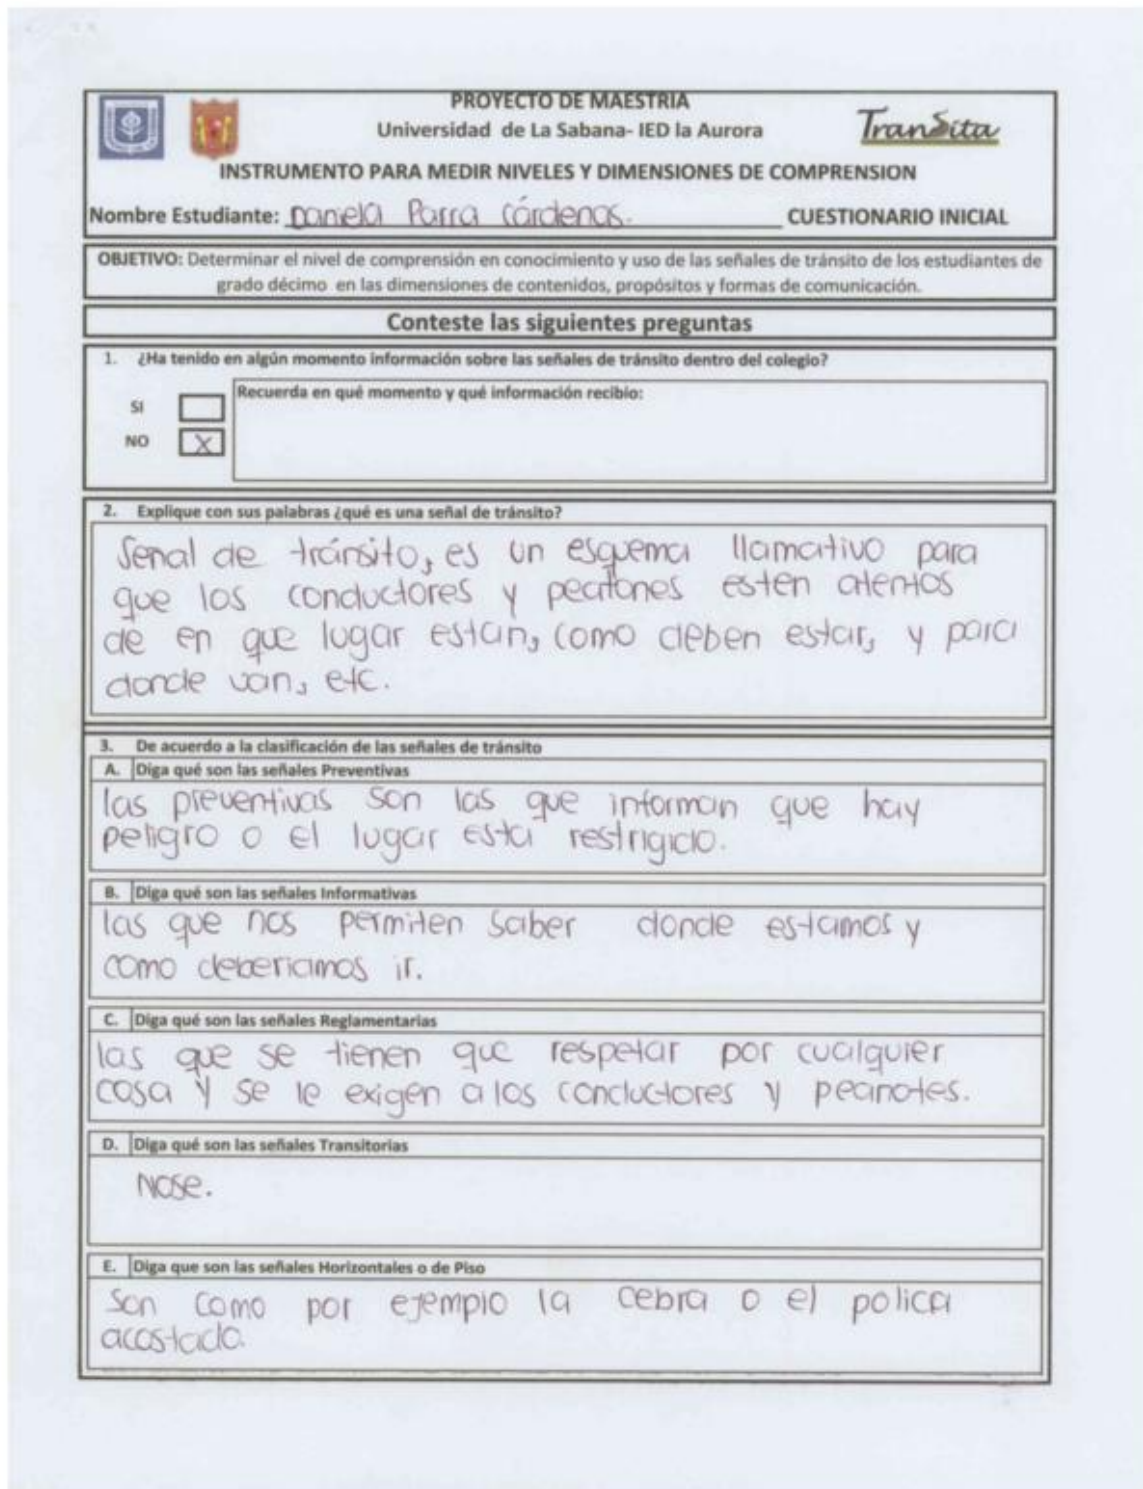 PROYECTO DE MAESTRIA
Universidad de La Sabana- IED la Aurora
TranSita
INSTRUMENTO PARA MEDIR NIVELES Y DIMENSIONES DE COMPRENSION
Nombre Estudiante: Daniela Parra Cárdenas. CUESTIONARIO INICIAL
OBJETIVO: Determinar el nivel de comprensión en conocimiento y uso de las señales de tránsito de los estudiantes de
grado décimo en las dimensiones de contenidos, propósitos y formas de comunicación.
Conteste las siguientes preguntas
1. ¿Ha tenido en algún momento información sobre las señales de tránsito dentro del colegio?
SI
Recuerda en qué momento y qué información recibio:
NO X
2. Explique con sus palabras ¿qué es una señal de tránsito?
Senal de tránsito, es un esquema llamativo para
que los conductores y peatones esten atentos
de en que lugar estan, como deben estar, y para
donde van, etc.
3. De acuerdo a la clasificación de las señales de tránsito
A. Diga qué son las señales Preventivas
las preventivas son las que informan que hay
peligro o el lugar esta restrigido.
B. Diga qué son las señales Informativas
las que nos permiten saber donde estamos y
como deberiamos ir.
C. Diga qué son las señales Reglamentarias
las que se tienen que respetar por cualquier
cosa y se le exigen a los conductores y peanotes.
D. Diga qué son las señales Transitorias
Nose.
E. Diga que son las señales Horizontales o de Piso
Son como por ejemplo la cebra o el polica
acostado.